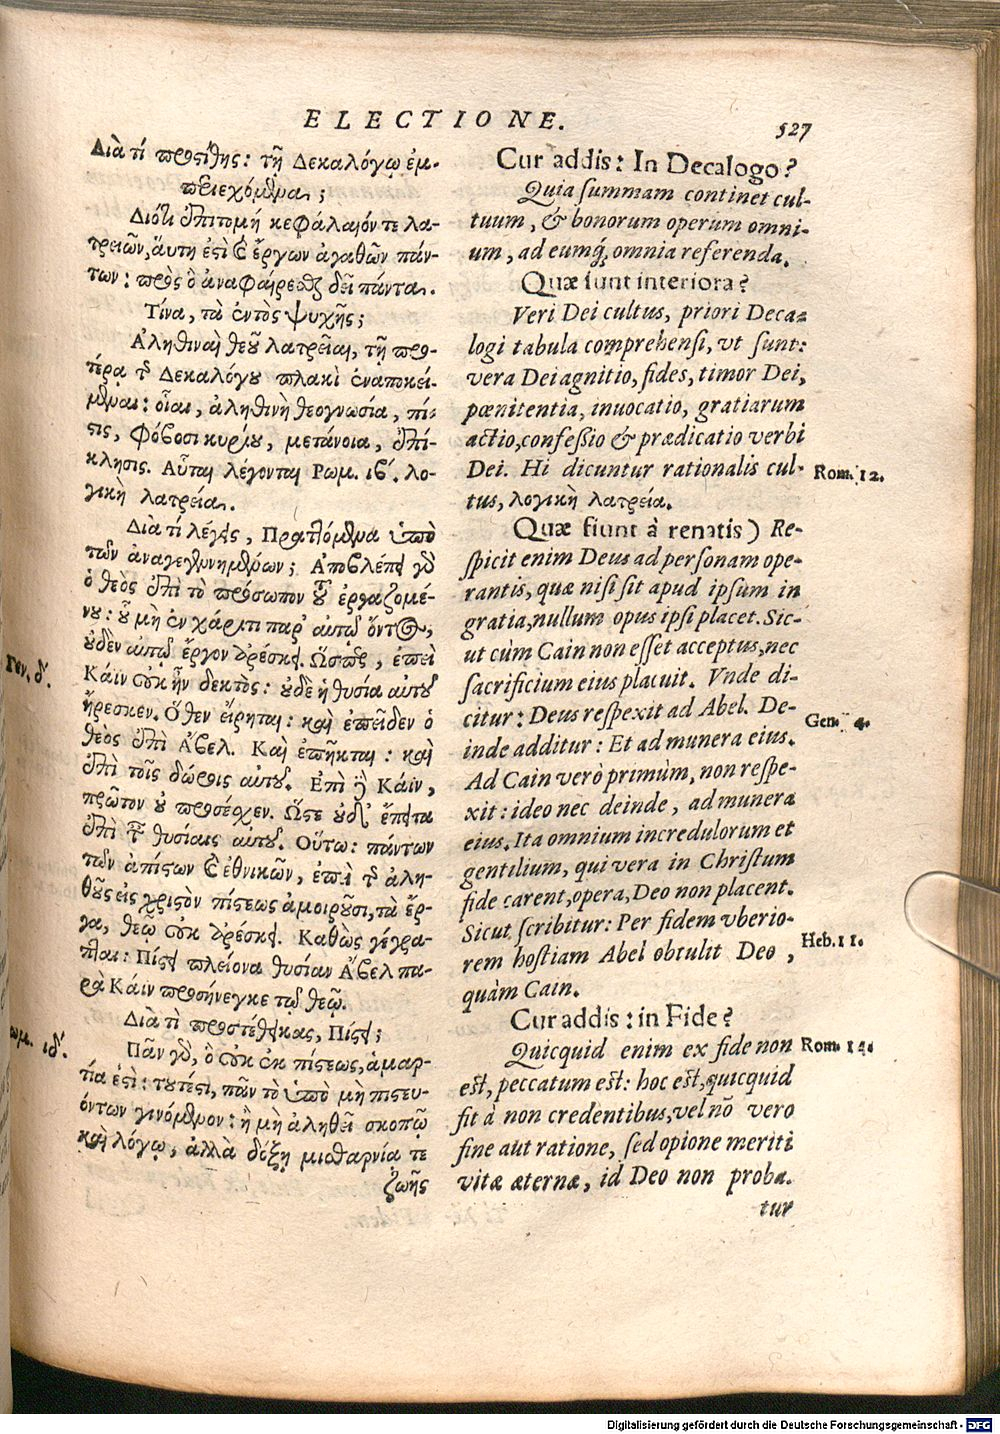 ELECTIONE.
527
Διὰ τί προςίθης: τῇ Δεκαλόγῳ ἐμ-
περιεχόμενα;
Διότι ἐπιτομή κεφάλαιόν τε λα-
τρειῶν, ἅυτη ἐςὶ καὶ ἔργων ἀγαθῶν πάν-
των: πρὸς ὃ ἀναφαίρεσθαι δεῖ πάντα.
Τίνα, τὰ ἐντὸς ψυχῆς;
Ἀληθιναὶ θεοῦ λατρεῖαι, τῇ προ-
τέρᾳ τοῦ Δεκαλόγου πλακὶ ἐναποκεί-
μεναι: οἷαι, ἀληθινὴ θεογνωσία, πί-
ςις, φόβοσι κυρίου, μετάνοια, ἐπί-
κλησις. Αὗται λέγονται Ρωμ. ιβ΄. λο-
γικὴ λατρεία.
Διὰ τί λέγεις, Πραττόμενα ὑπὸ
τῶν ἀναγεγεννημένων; Ἀποβλέπει γὰρ
ὁ θεὸς ἐπὶ τὸ πρόσωπον τοῦ ἐργαζομέ-
νου: οὗ μὴ ἐν χάριτι παρ' αὐτῷ ὄντος,
οὐδὲν αὐτῷ ἔργον ἀρέσκει. Ὥσπερ, ἐπεὶ
Κάϊν οὐκ ἦν δεκτὸς: οὐδὲ ἡ θυσία αὐτοῦ
ἤρεσκεν. Ὅθεν εἴρηται: καὶ ἐπεῖδεν ὁ
θεὸς ἐπὶ Ἄβελ. Καὶ ἐπῆκται: καὶ
ἐπὶ τοῖς δώροις αὐτοῦ. Ἐπὶ δὲ Κάϊν,
πρῶτον οὐ προσέσχεν. Ὥςε οὐδ' ἔπειτα
ἐπὶ ταῖς θυσίαις αὐτοῦ. Οὕτω: πάντων
τῶν ἀπίςων καὶ ἐθνικῶν, ἐπεὶ τῆς ἀλη-
θοῦς εἰς χριςὸν πίςεως ἀμοιροῦσι, τὰ ἔρ-
γα, θεῷ οὐκ ἀρέσκει. Καθὼς γέγρα-
πται: Πίςει πλείονα θυσίαν Ἄβελ πα-
ρὰ Κάϊν προσήνεγκε τῷ θεῷ.
Διὰ τὶ προστέθεικας, Πίςει;
Πᾶν γὰρ, ὃ οὐκ ἐκ πίςεως, ἁμαρ-
τία ἐςὶ: τουτέςι, πᾶν τὸ ὑπὸ μὴ πιςευ-
όντων γινόμενον: ἢ μὴ ἀληθεῖ σκοπῷ
καὶ λόγῳ, ἀλλὰ δόξῃ μισθαρνία τε
ζωῆς
Γεν. δ΄.
ιδ΄.
Cur addis: In Decalogo?
Quia summam continet cul-
tuum, & bonorum operum omni-
um, ad eumq́, omnia referenda.
Quæ sunt interiora?
Veri Dei cultus, priori Deca-
logi tabula comprehensi, vt sunt:
vera Dei agnitio, fides, timor Dei,
pœnitentia, inuocatio, gratiarum
actio, confessio & prædicatio verbi
Dei. Hi dicuntur rationalis cul-
tus, λογικὴ λατρεία.
Quæ fiunt à renatis) Re-
spicit enim Deus ad personam ope-
rantis, quæ nisi sit apud ipsum in
gratia, nullum opus ipsi placet. Sic-
ut cùm Cain non esset acceptus, nec
sacrificium eius placuit. Vnde di-
citur: Deus respexit ad Abel. De-
inde additur: Et ad munera eius.
Ad Cain verò primùm, non respe-
xit: ideo nec deinde, ad munera
eius. Ita omnium incredulorum et
gentilium, qui vera in Christum
fide carent, opera, Deo non placent.
Sicut scribitur: Per fidem vberio-
rem hostiam Abel obtulit Deo,
quàm Cain.
Cur addis: in Fide?
Quicquid enim ex fide non
est, peccatum est: hoc est, quicquid
fit à non credentibus, vel nō vero
fine aut ratione, sed opione meriti
vitæ æternæ, id Deo non proba-
tur
Rom. 12.
Gen. 4.
Heb. 11.
Rom. 14.
Digitalisierung gefördert durch die Deutsche Forschungsgemeinschaft - DFG